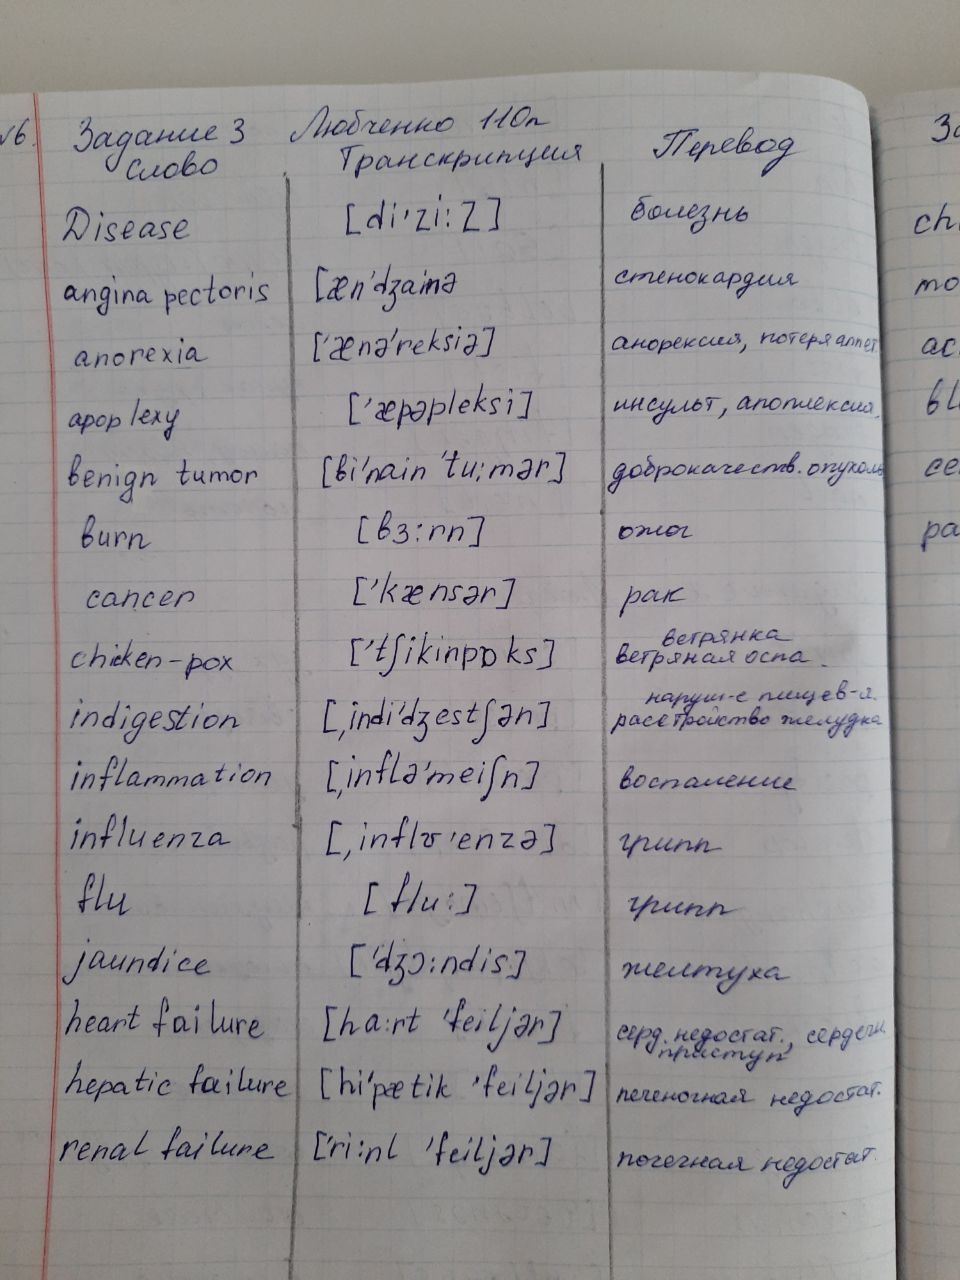 №6. Задание 3 Любченко 110п
Слово Транскрипция Перевод
Disease [di'zi:z] болезнь
angina pectoris [æn'dʒainə стенокардия
anorexia ['ænə'reksiə] анорексия, потеря аппет.
apoplexy ['æpəpleksi] инсульт, апоплексия.
benign tumor [bi'nain 'tu:mər] доброкачеств. опухоль
burn [bɜ:rn] ожог
cancer ['kænsər] рак
ветрянка
chicken-pox ['tʃikinpɒks] ветряная оспа.
наруш-е пищев-я.
indigestion [,indi'dʒestʃən] расстройство желудка
inflammation [,inflə'meiʃn] воспаление
influenza [,inflʊ'enzə] грипп
flu [flu:] грипп
jaundice ['dʒɔ:ndis] желтуха
heart failure [ha:rt 'feiljər] серд. недостат., сердечн.
приступ
hepatic failure [hi'pætik 'feiljər] печеночная недостат.
renal failure ['ri:nl 'feiljər] почечная недостат.
За
ch
mo
ac
bl
ce
pa